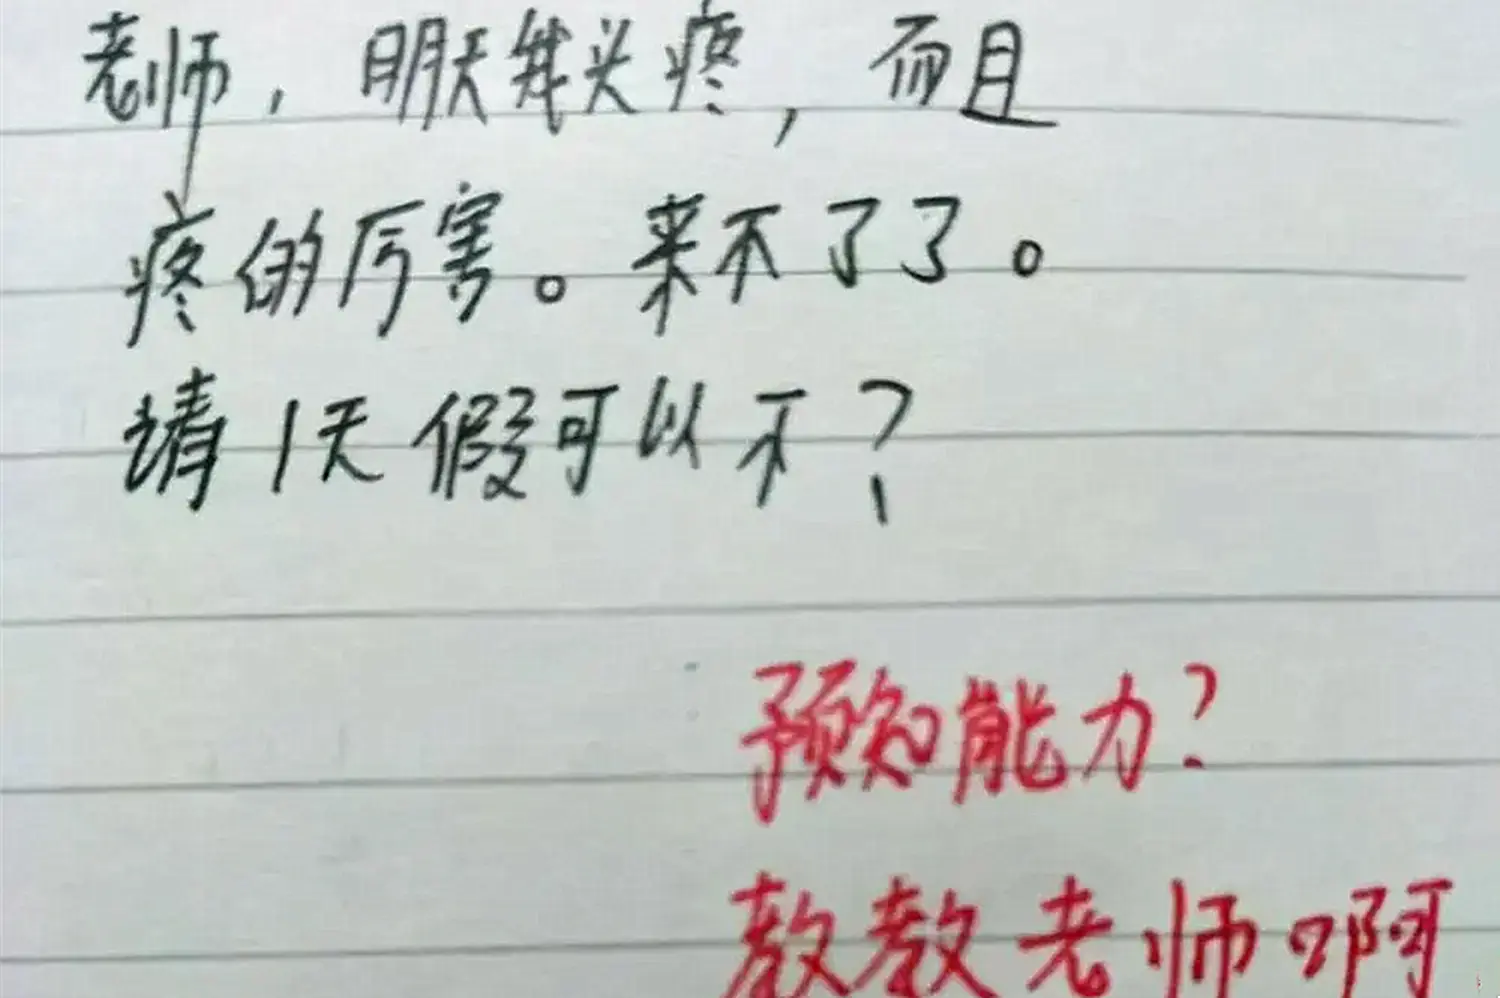 老师，明天我头疼，而且
疼的厉害。来不了了。
请1天假可以不？
预知能力？
教教老师啊